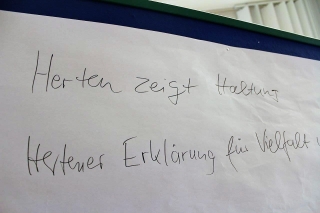 Herten zeigt Haltung
Hertener Erklärung für Vielfalt